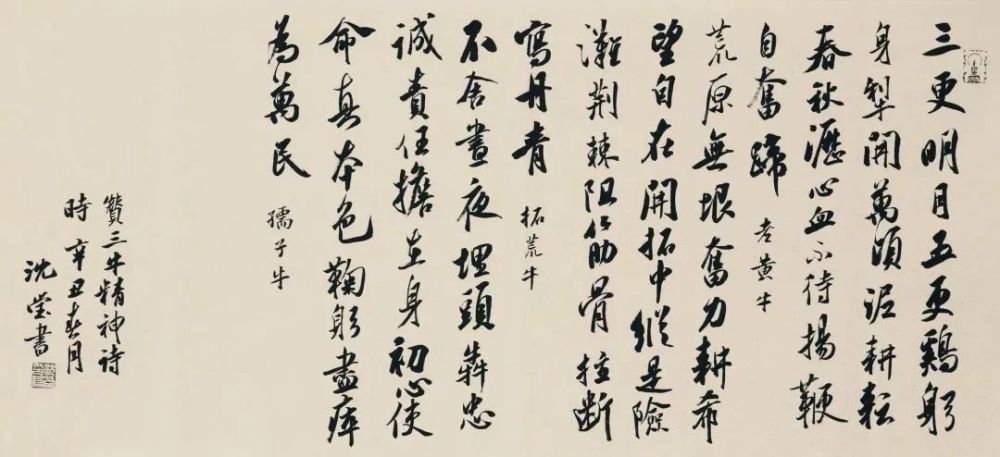 三更明月五更鷄躬
身犁開萬頃泥耕耘
春秋瀝心血不待揚鞭
自奮蹄 老黄牛
荒原無垠奮力耕希
望自在開拓中縱是險
灘荆棘阻筋骨拄斷
寫丹青 拓荒牛
不舍晝夜埋頭忠
誠責任擔在身初心使
命真本色鞠躬盡瘁
為萬民 孺子牛
贊三牛精神詩
時辛丑春月
沈瑩書